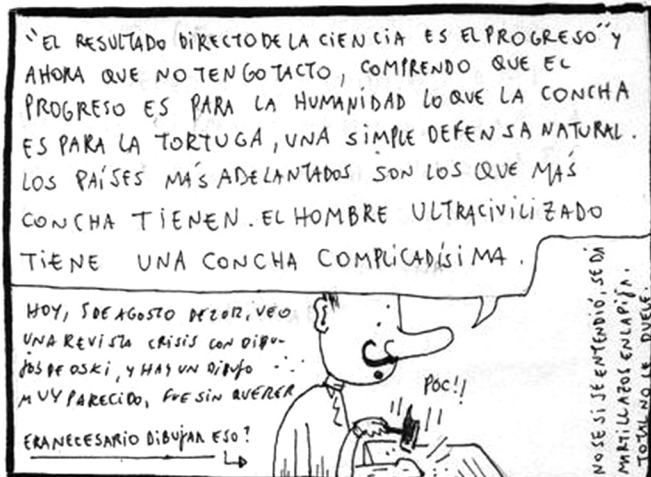 "EL RESULTADO DIRECTO DE LA CIENCIA ES EL PROGRESO" Y
AHORA QUE NO TENGO TACTO, COMPRENDO QUE EL
PROGRESO ES PARA LA HUMANIDAD LO QUE LA CONCHA
ES PARA LA TORTUGA, UNA SIMPLE DEFENSA NATURAL.
LOS PAÍSES MÁS ADELANTADOS SON LOS QUE MÁS
CONCHA TIENEN. EL HOMBRE ULTRACIVILIZADO
TIENE UNA CONCHA COMPLICADÍSIMA.
HOY, 5 DE AGOSTO DE 2012, VEO
UNA REVISTA CRISIS CON DIBU-
JOS DE OSKI, Y HAY UN DIBUJO
MUY PARECIDO, FUE SIN QUERER
ERA NECESARIO DIBUJAR ESO?
POC!!
NO SE SI SE ENTENDIÓ, SE DÁ
MARTILLAZOS EN LA PIJA.
TOTAL NO LE DUELE.